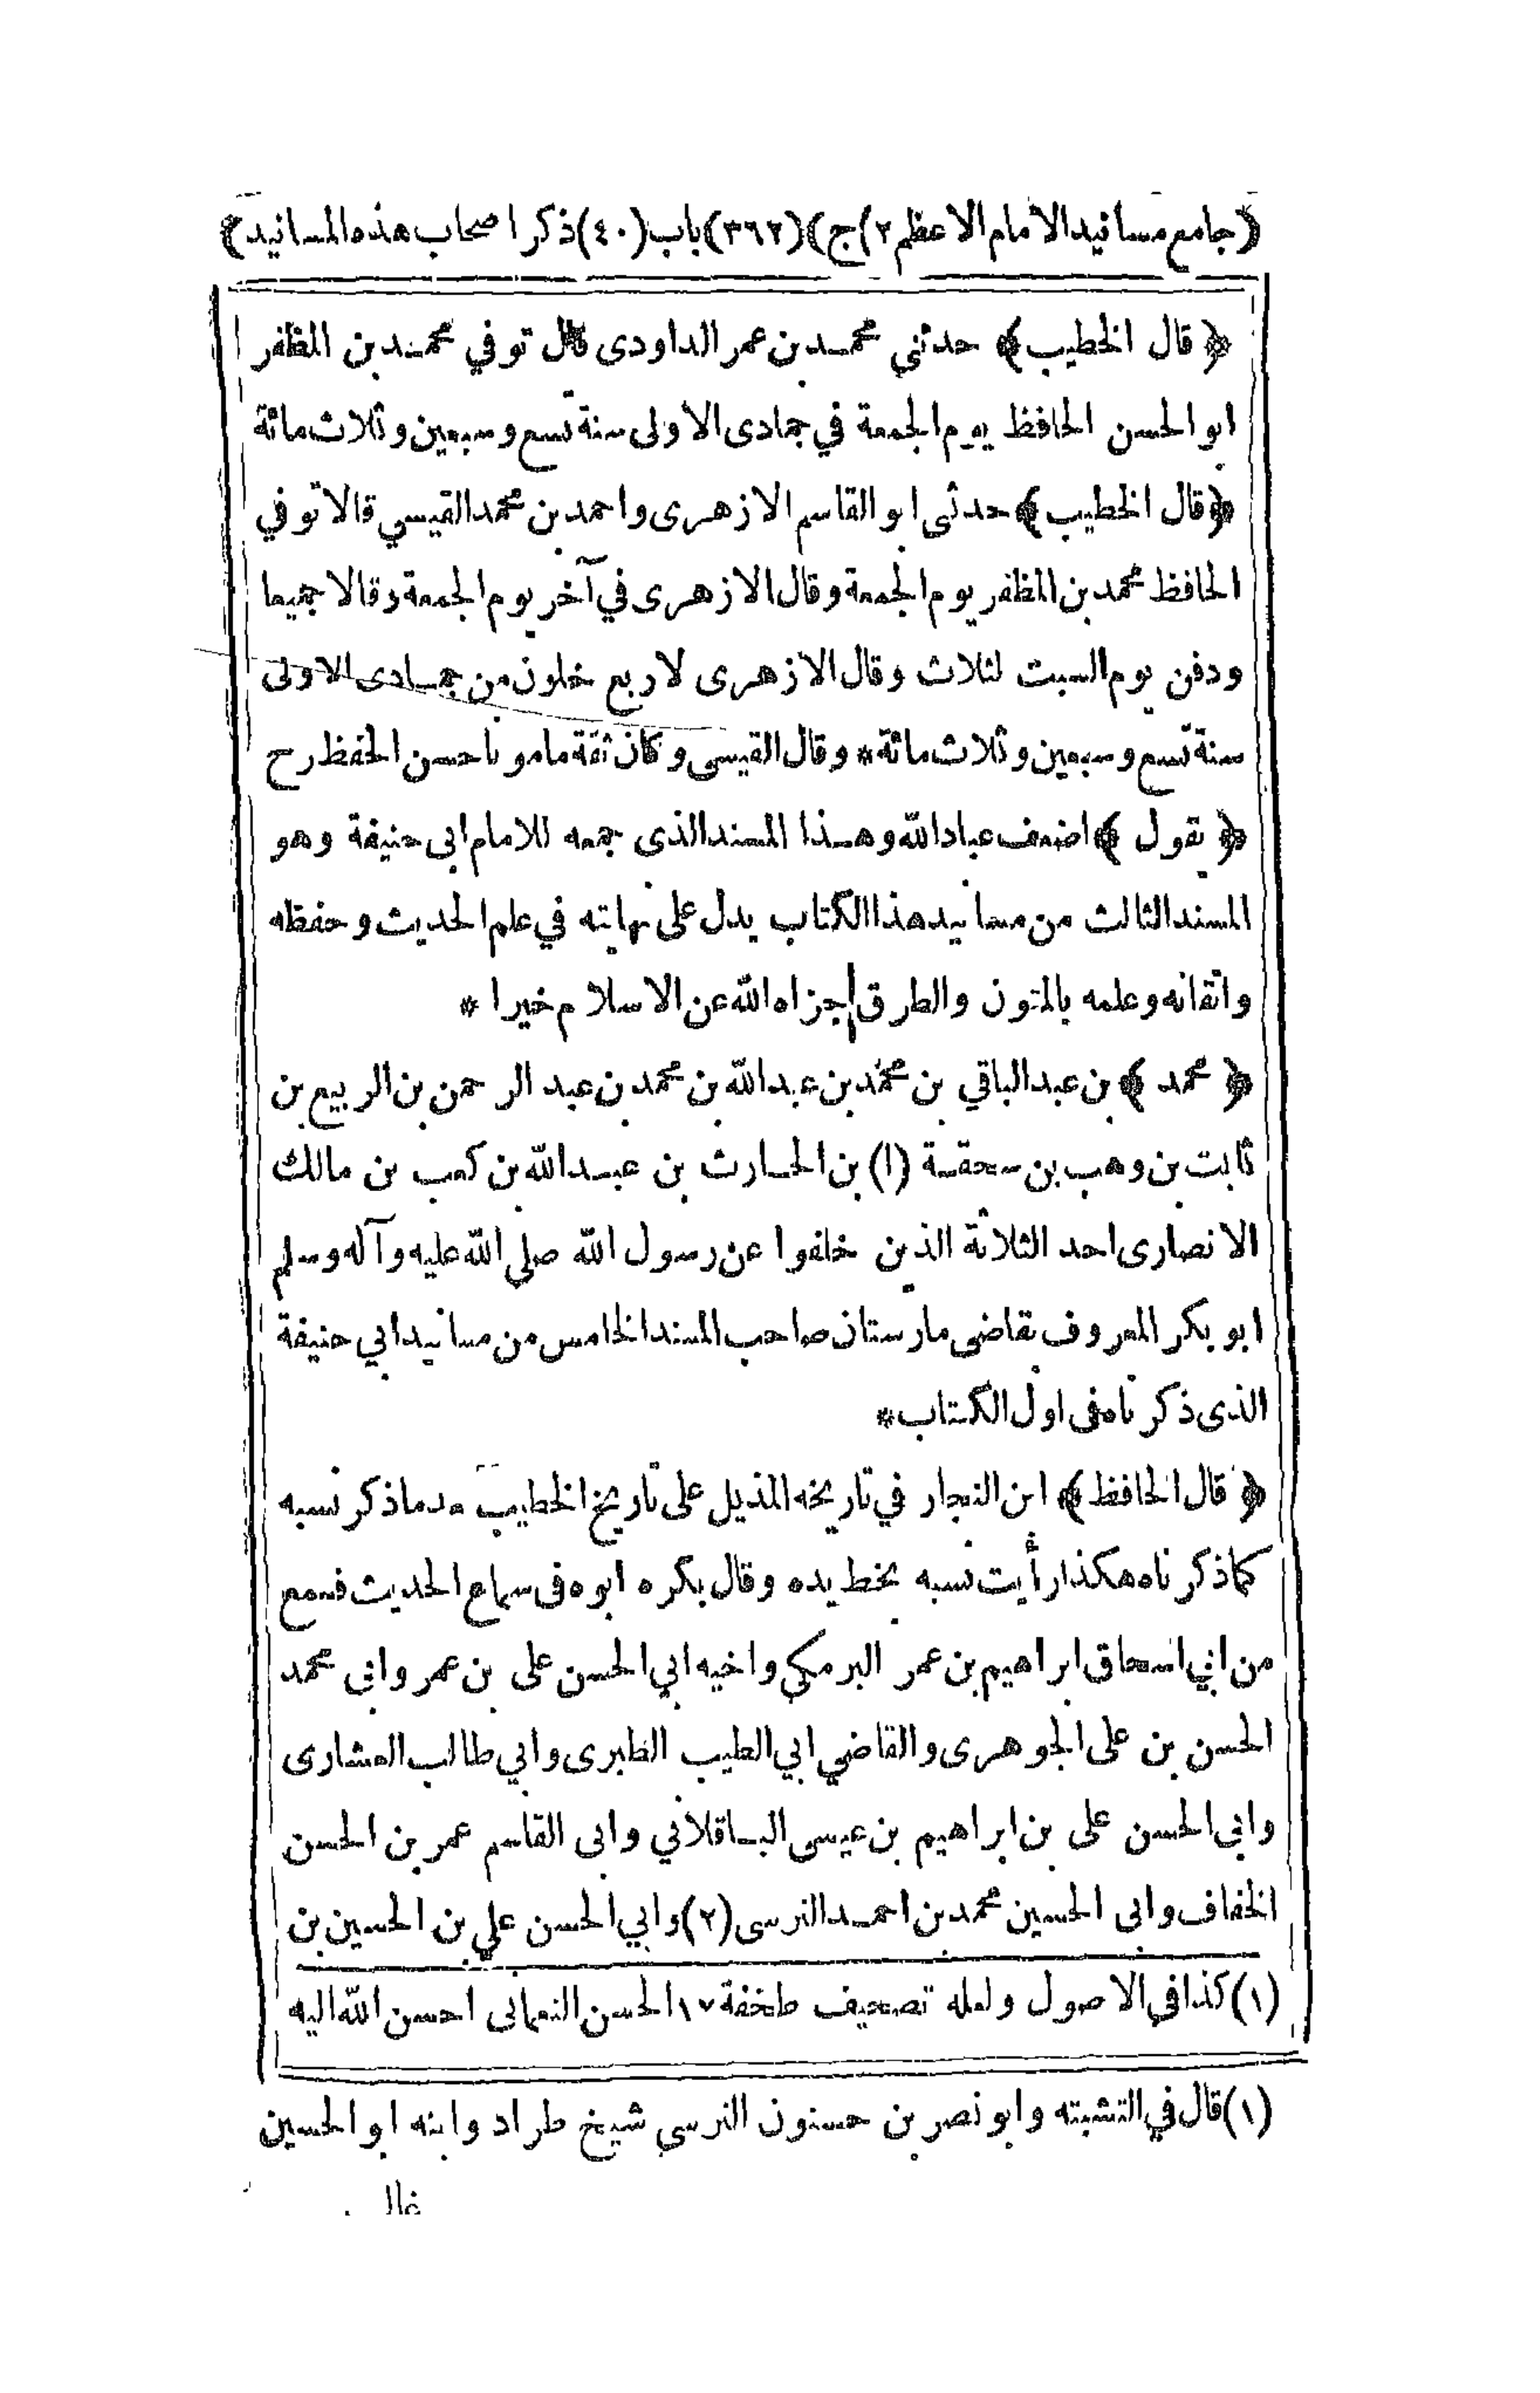 (جامع مسانيد الامام الاعظم ٢)ج)(٣٦٢)باب(٤٠)ذكر اصحاب هذه المسانيد)
﴿ قال الخطيب﴾ حدثني محمد بن عمر الداودى قال توفي محمد بن المظفر
ابو الحسن الحافظ يوم الجمعة في جمادى الاولى سنة تسع وسبعين وثلاث مائة
﴿قال الخطيب﴾ حدثنى ابو القاسم الازهرى واحمد بن محمد القيسي قالا توفي
الحافظ محمد بن المظفر يوم الجمعة وقال الازهرى في آخر يوم الجمعة وقالا جميعا
ودفن يوم السبت لثلاث وقال الازهرى لاربع خلون من جمادى الاولى
سنة تسع وسبعين وثلاث مائة* وقال القيسى وكان ثقة مامونا حسن الحفظ رح
﴿ يقول ﴾ اضعف عباد الله وهذا المسند الذى جمعه للامام ابى حنيفة وهو
المسند الثالث من مسانيد هذا الكتاب يدل على نهايته في علم الحديث وحفظه
واتقانه وعلمه بالمتون والطرق جزاه الله عن الاسلام خيرا *
﴿ محمد ﴾ بن عبد الباقي بن محمد بن عبد الله بن محمد بن عبد الرحمن بن الربيع بن
ثابت بن وهب بن سحقة (١) بن الحارث بن عبد الله بن كعب بن مالك
الانصارى احد الثلاثة الذين خلفوا عن رسول الله صلى الله عليه وآله وسلم
ابو بكر المعروف بقاضى مارستان صاحب المسند الخامس من مسانيد ابي حنيفة
الذى ذكرناه فى اول الكتاب*
﴿ قال الحافظ﴾ ابن النجار في تاريخه المذيل على تاريخ الخطيب بعد ما ذكر نسبه
كما ذكرناه هكذا رأيت نسبه بخط يده وقال بكره ابوه فى سماع الحديث فسمع
من ابي اسحاق ابراهيم بن عمر البرمكي واخيه ابي الحسن على بن عمر وابي محمد
الحسن بن على الجوهرى والقاضي ابي الطيب الطبرى وابي طالب العشارى
وابي الحسن على بن ابراهيم بن عيسى الباقلاني وابى القاسم عمر بن الحسن
الخفاف وابى الحسين محمد بن احمد النرسى (٢) وابي الحسن علي بن الحسين بن
(١) كذا في الاصول ولعله تصحيف طخفة ١٧ الحسن النعمانى احسن الله اليه
(١) قال في التشبته وابو نصر بن حسنون النرسي شيخ طراد وابنه ابو الحسين